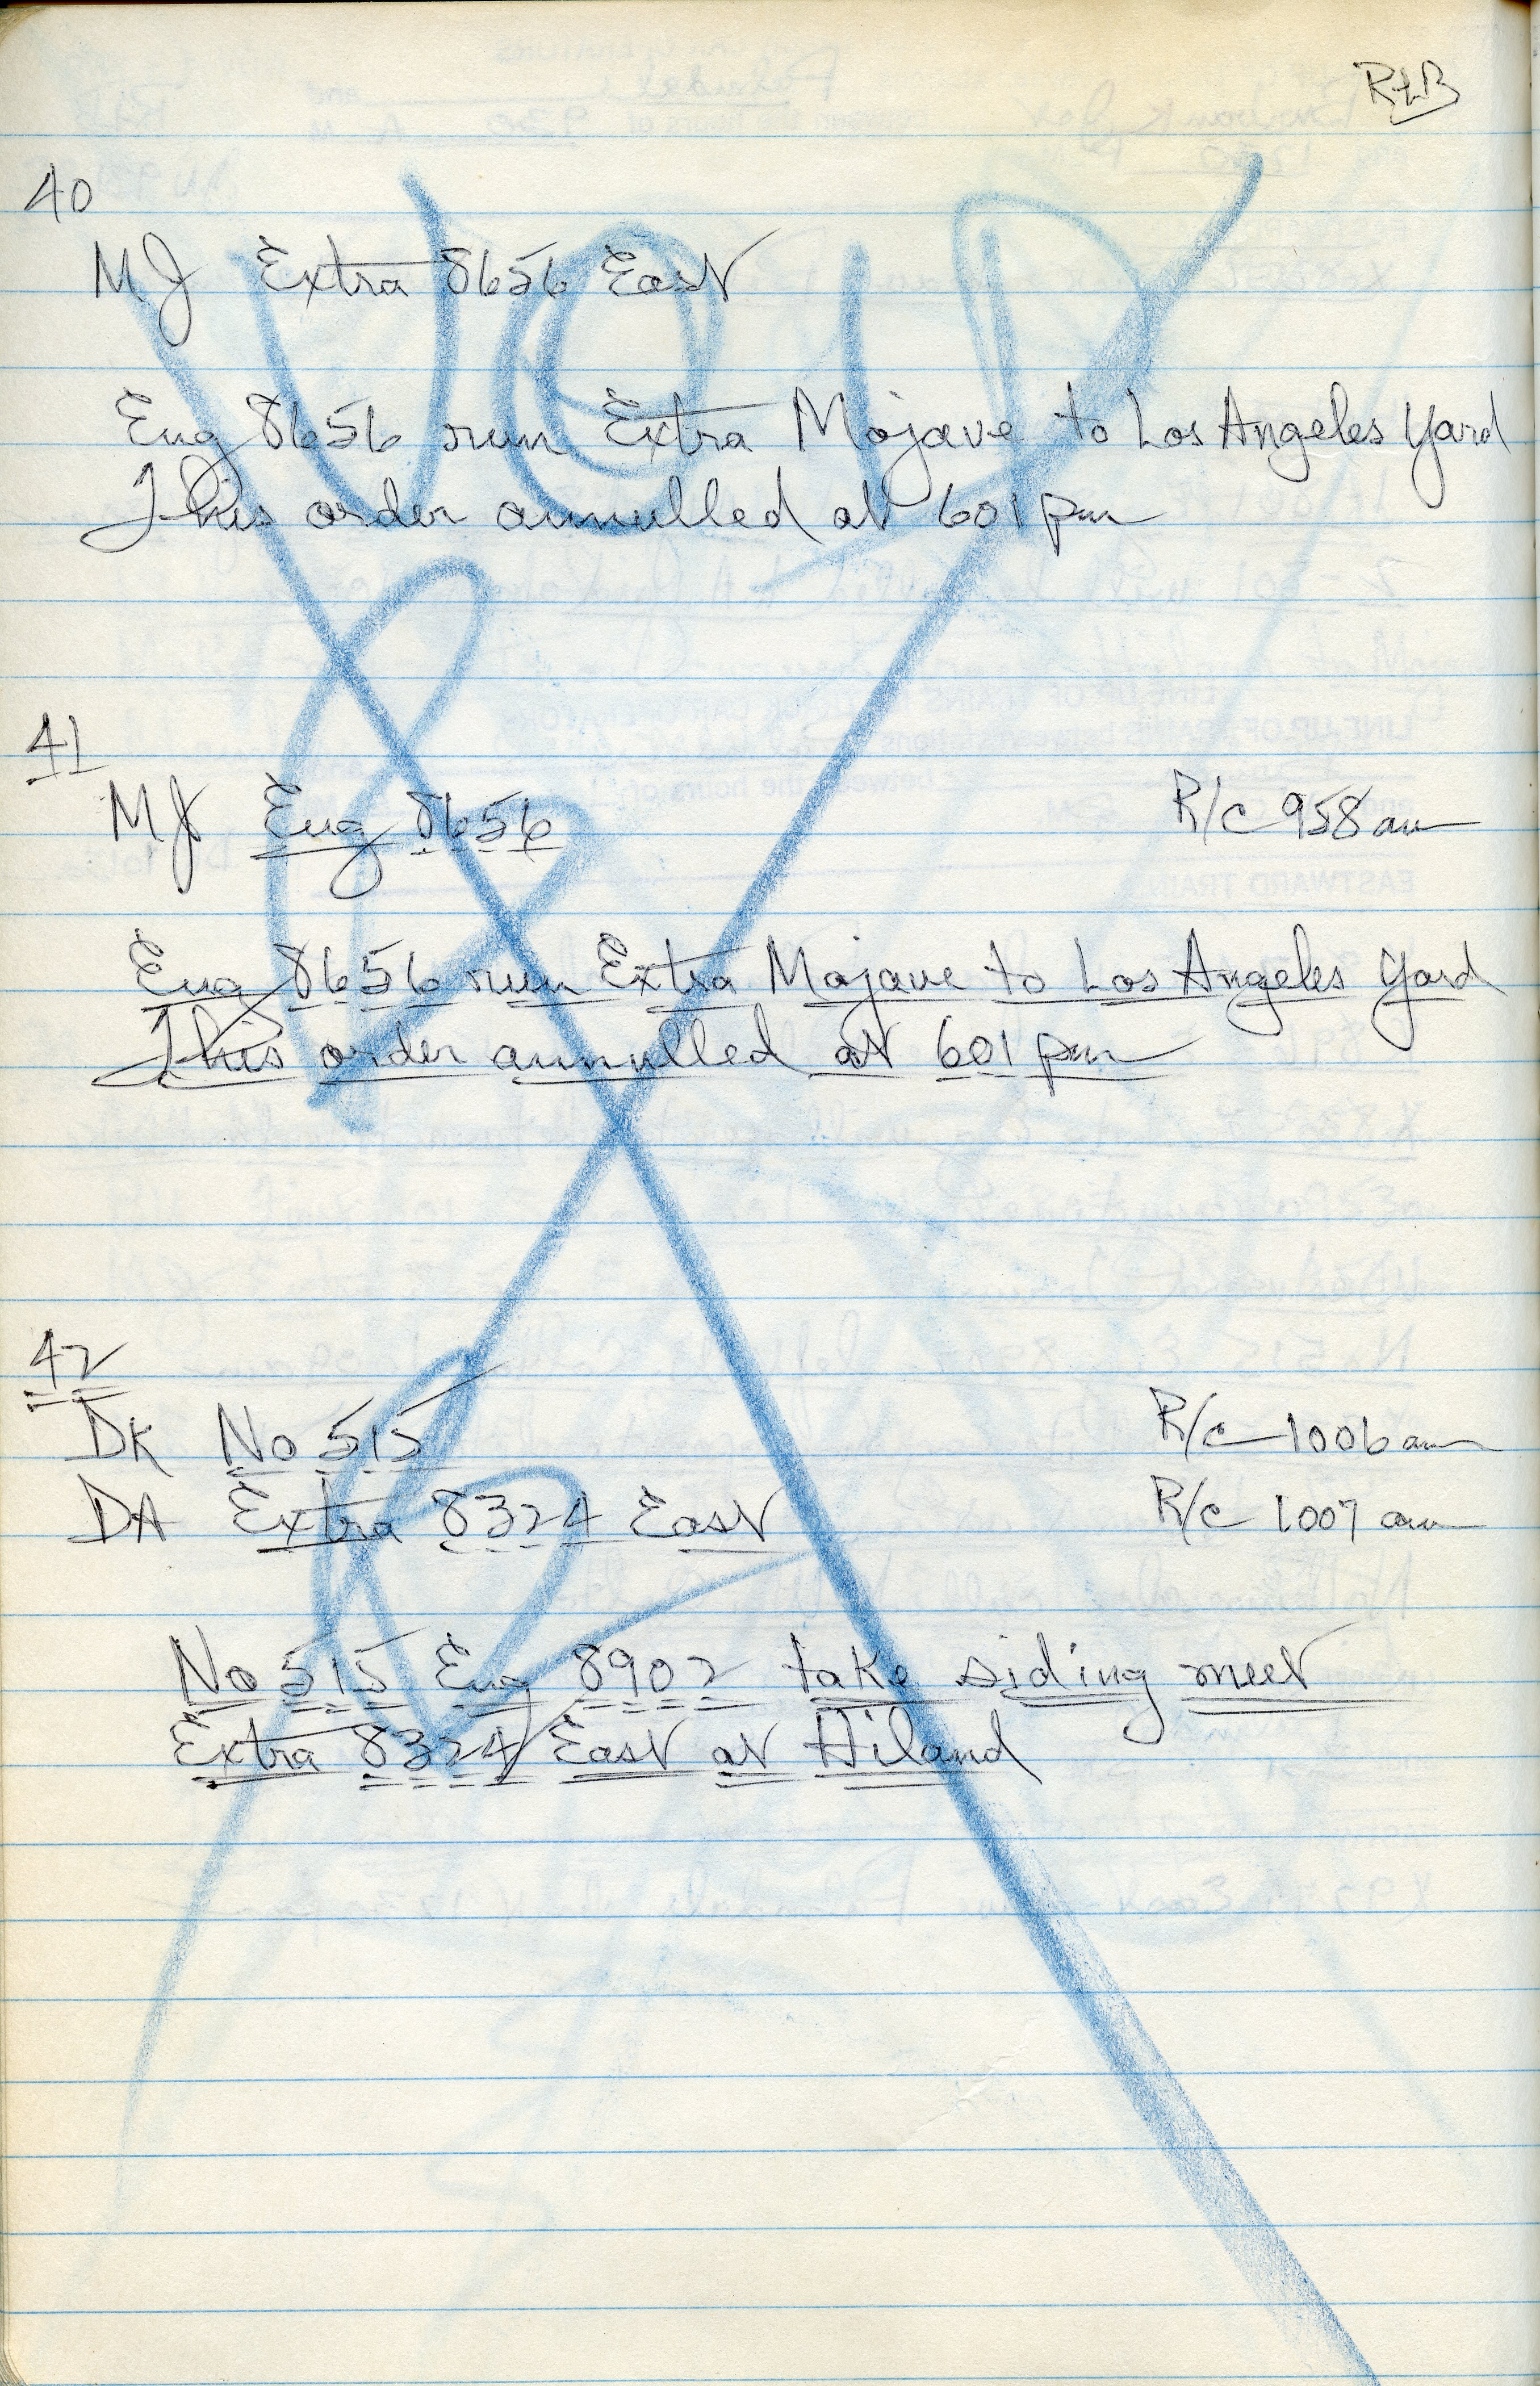 RLB
VOID
40
MJ Extra 8656 East
Eng 8656 run Extra Mojave to Los Angeles Yard
This order annulled at 601 pm
41
MJ Eng 8656 R/c 958 am
Eng 8656 run Extra Mojave to Los Angeles Yard
This order annulled at 601 pm
42
DK No 515 R/c 1006 am
DA Extra 8324 East R/c 1007 am
No 515 Eng 8902 take siding meet
Extra 8324 East at Hiland